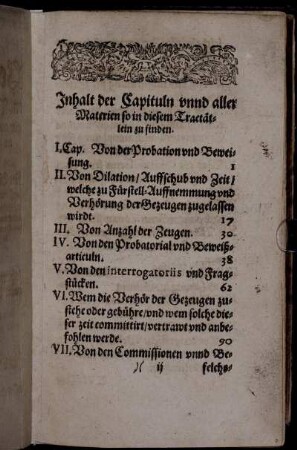 Jnhalt der Capituln vnnd aller
Materien so in diesem Tractät-
lein zu finden.
I. Cap. Von der Probation vnd Bewei-
sung. 1
II. Von Dilation/Auffschub vnd Zeit/
welche zu Fürstell-Auffnemmung vnd
Verhörung der Gezeugen zugelassen
wirdt. 17
III. Von Anzahl der Zeugen. 30
IV. Von den Probatorial vnd Beweiß-
articuln. 38
V. Von den interrogatoriis vnd Frag-
stücken. 62
VI. Wem die Verhör der Gezeugen zu-
stehe oder gebühre/vnd wem solche die-
ser zeit committirt/vertrawt vnd anbe-
fohlen werde. 90
VII. Von den Commissionen vnnd Be-
)( ij felchs-